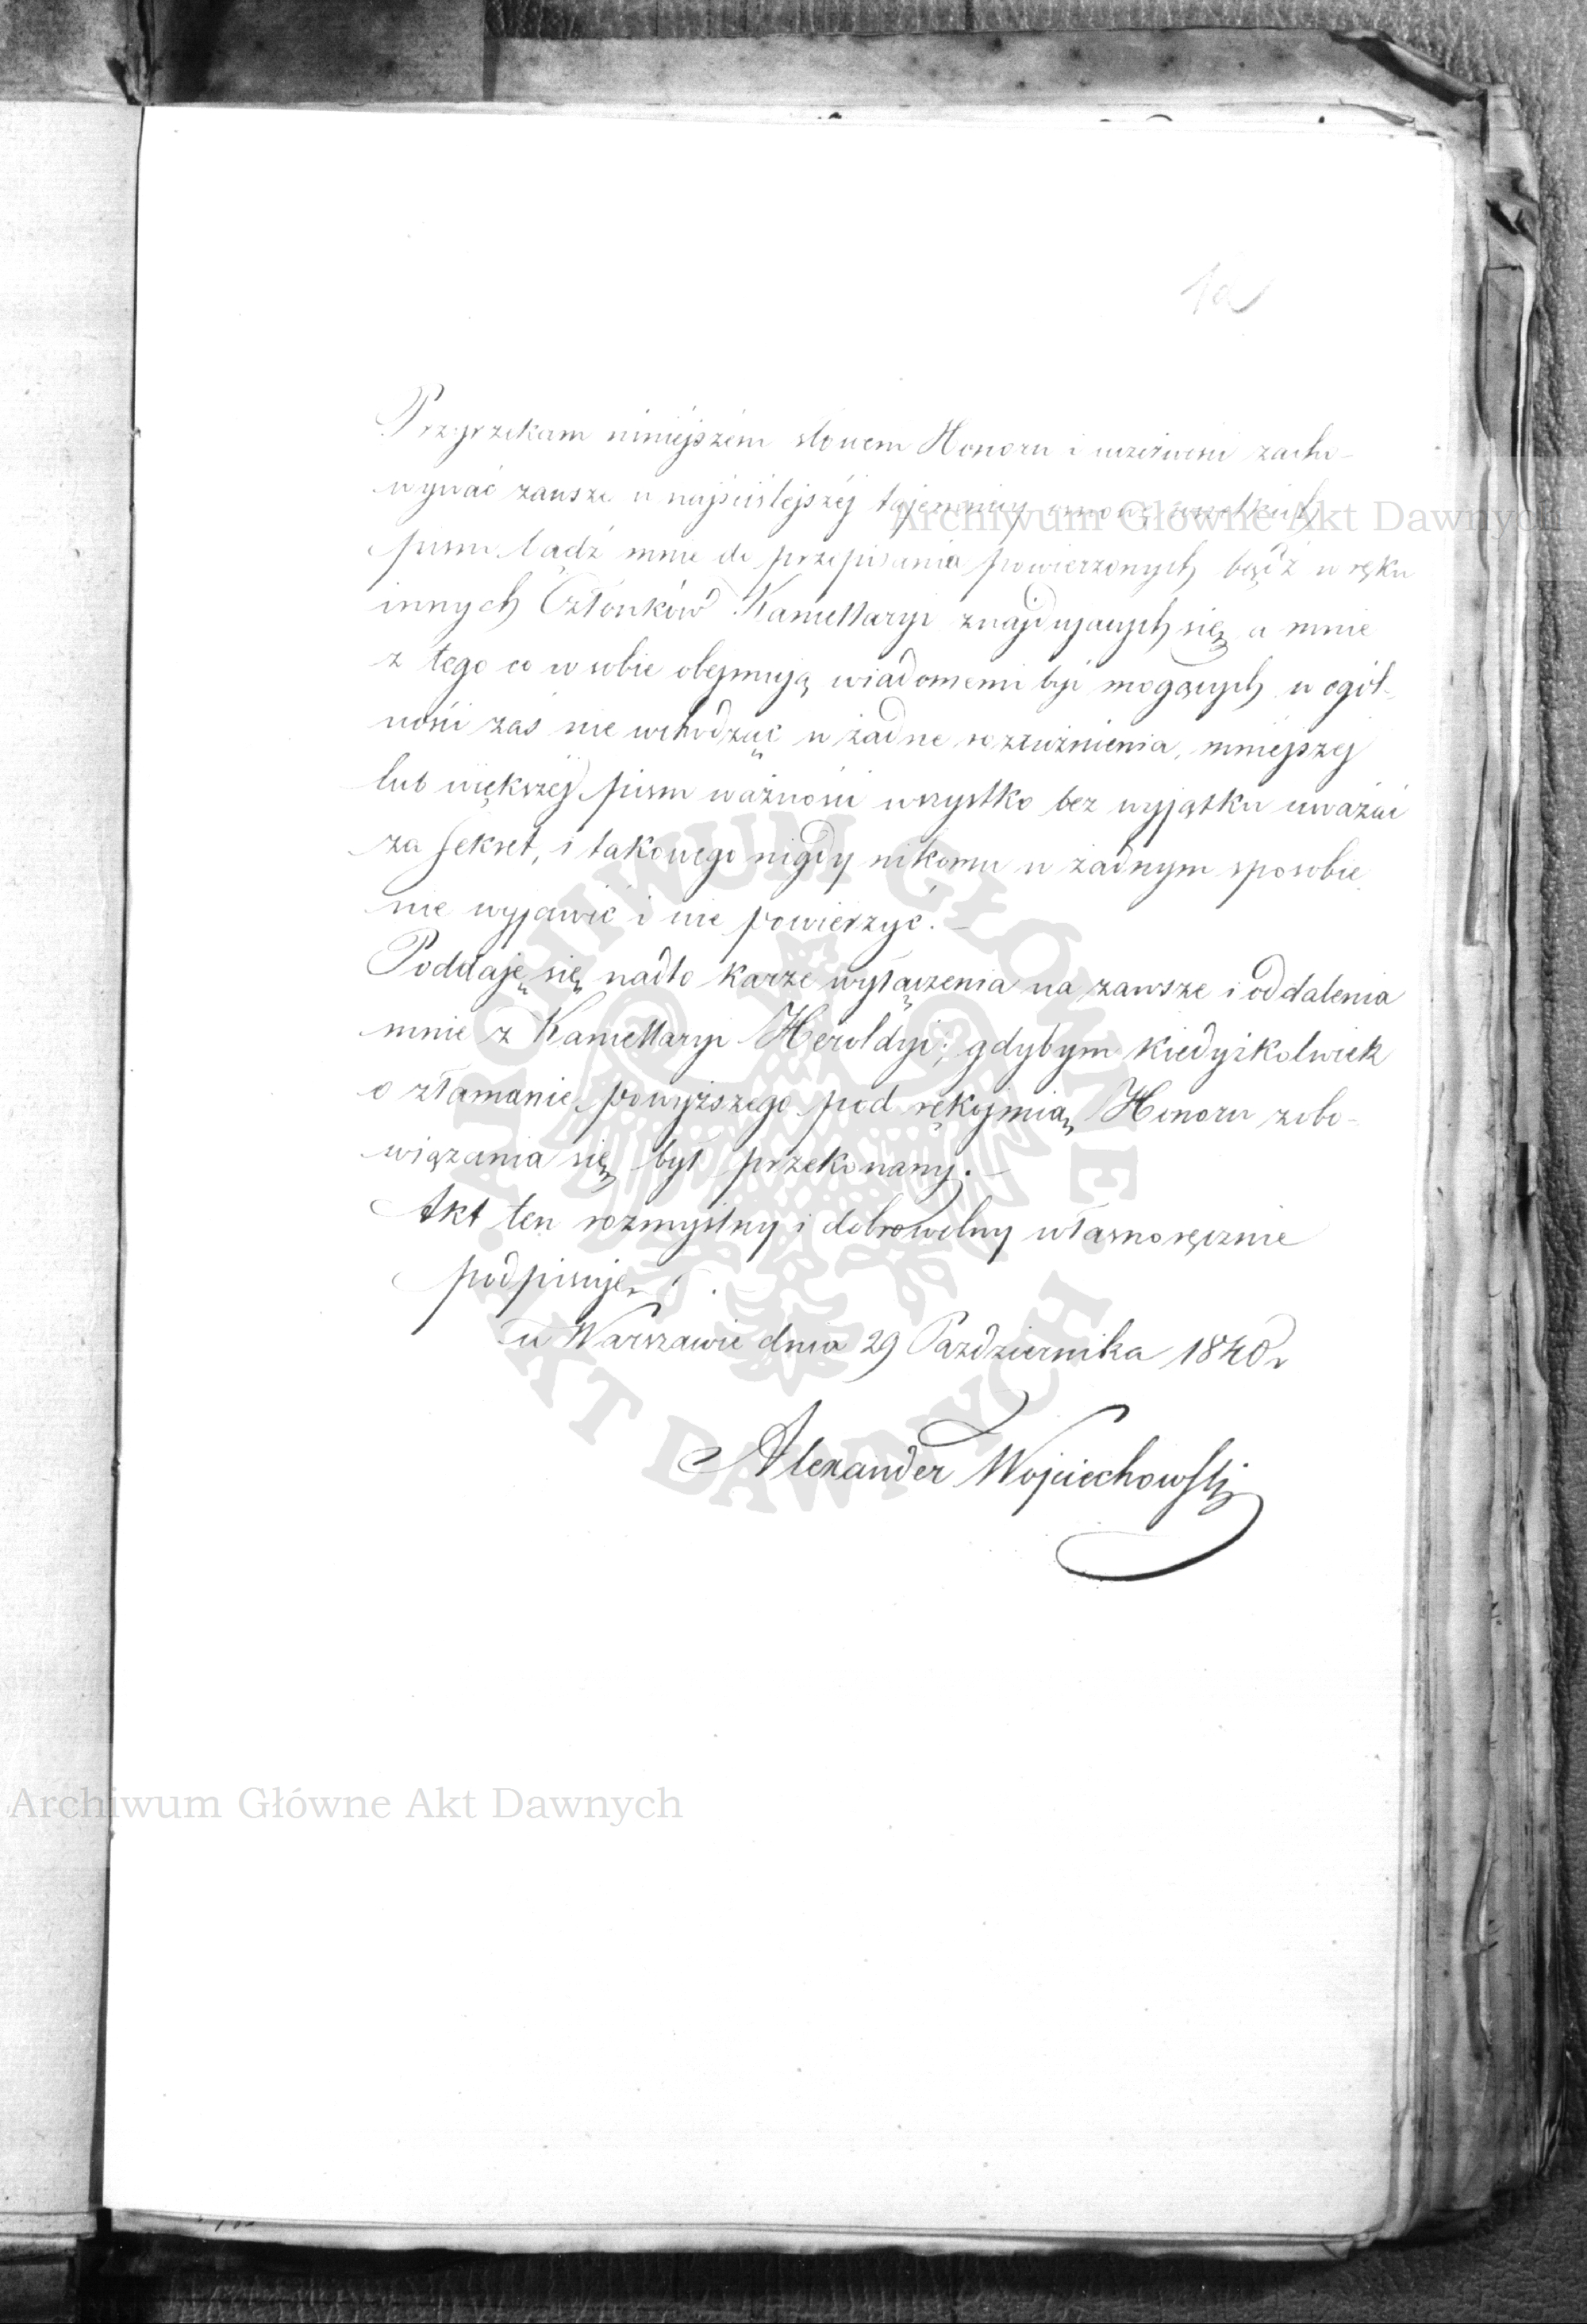 10
Przyrzekam niniejszém słowem Honoru i uczciwości zacho-
wywać zawsze w najściślejszéj tajemnicy osnowę wszelkich
pism bądź mnie do przepisania powierzonych bądź w ręku
innych Członków Kancellaryi znajdujących się a mnie
z tego co w sobie obejmują wiadomemi być mogących w ogól-
ności zaś nie wchodząc w żadne rozróżnienia, mniejszej
lub większéj pism ważności wszystko bez wyjątku uważać
za Sekret, i takowego nigdy nikomu w żadnym sposobie
nie wyjawić i nie powierzyć. –
Poddaję się nadto karze wyłączenia na zawsze i oddalenia
mnie z Kancellaryi Heroldyi; gdybym kiedyżkolwiek
o złamanie powyższego pod rękojmią Honoru zobo-
wiązania się był przekonany. –
Akt ten rozmyślny i dobrowolny własnoręcznie
podpisuję
w Warszawie dnia 29 Października 1840 r
Alexander Wojciechowski
Archiwum Główne Akt Dawnych
Archiwum Główne Akt Dawnych
ARCHIWUM GŁÓWNE AKT DAWNYCH